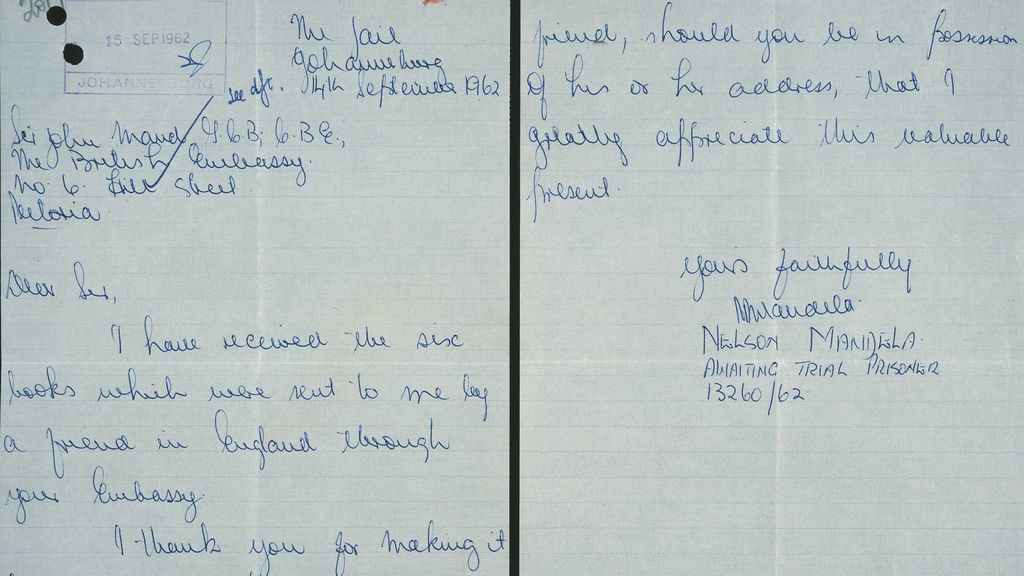 15 SEP 1962
JOHANNESBURG
The Jail
Johannesburg
14th September 1962
see dft.
Sir John Maud G.C.B; C.B.E.,
The British Embassy.
No. 6. Hill Street
Pretoria.
Dear Sir,
I have received the six
books which were sent to me by
a friend in England through
your Embassy.
I thank you for making it
friend, should you be in possession
of his or her address, that I
greatly appreciate this valuable
present.
Yours faithfully
NMandela.
NELSON MANDELA.
AWAITING TRIAL PRISONER
13260/62.